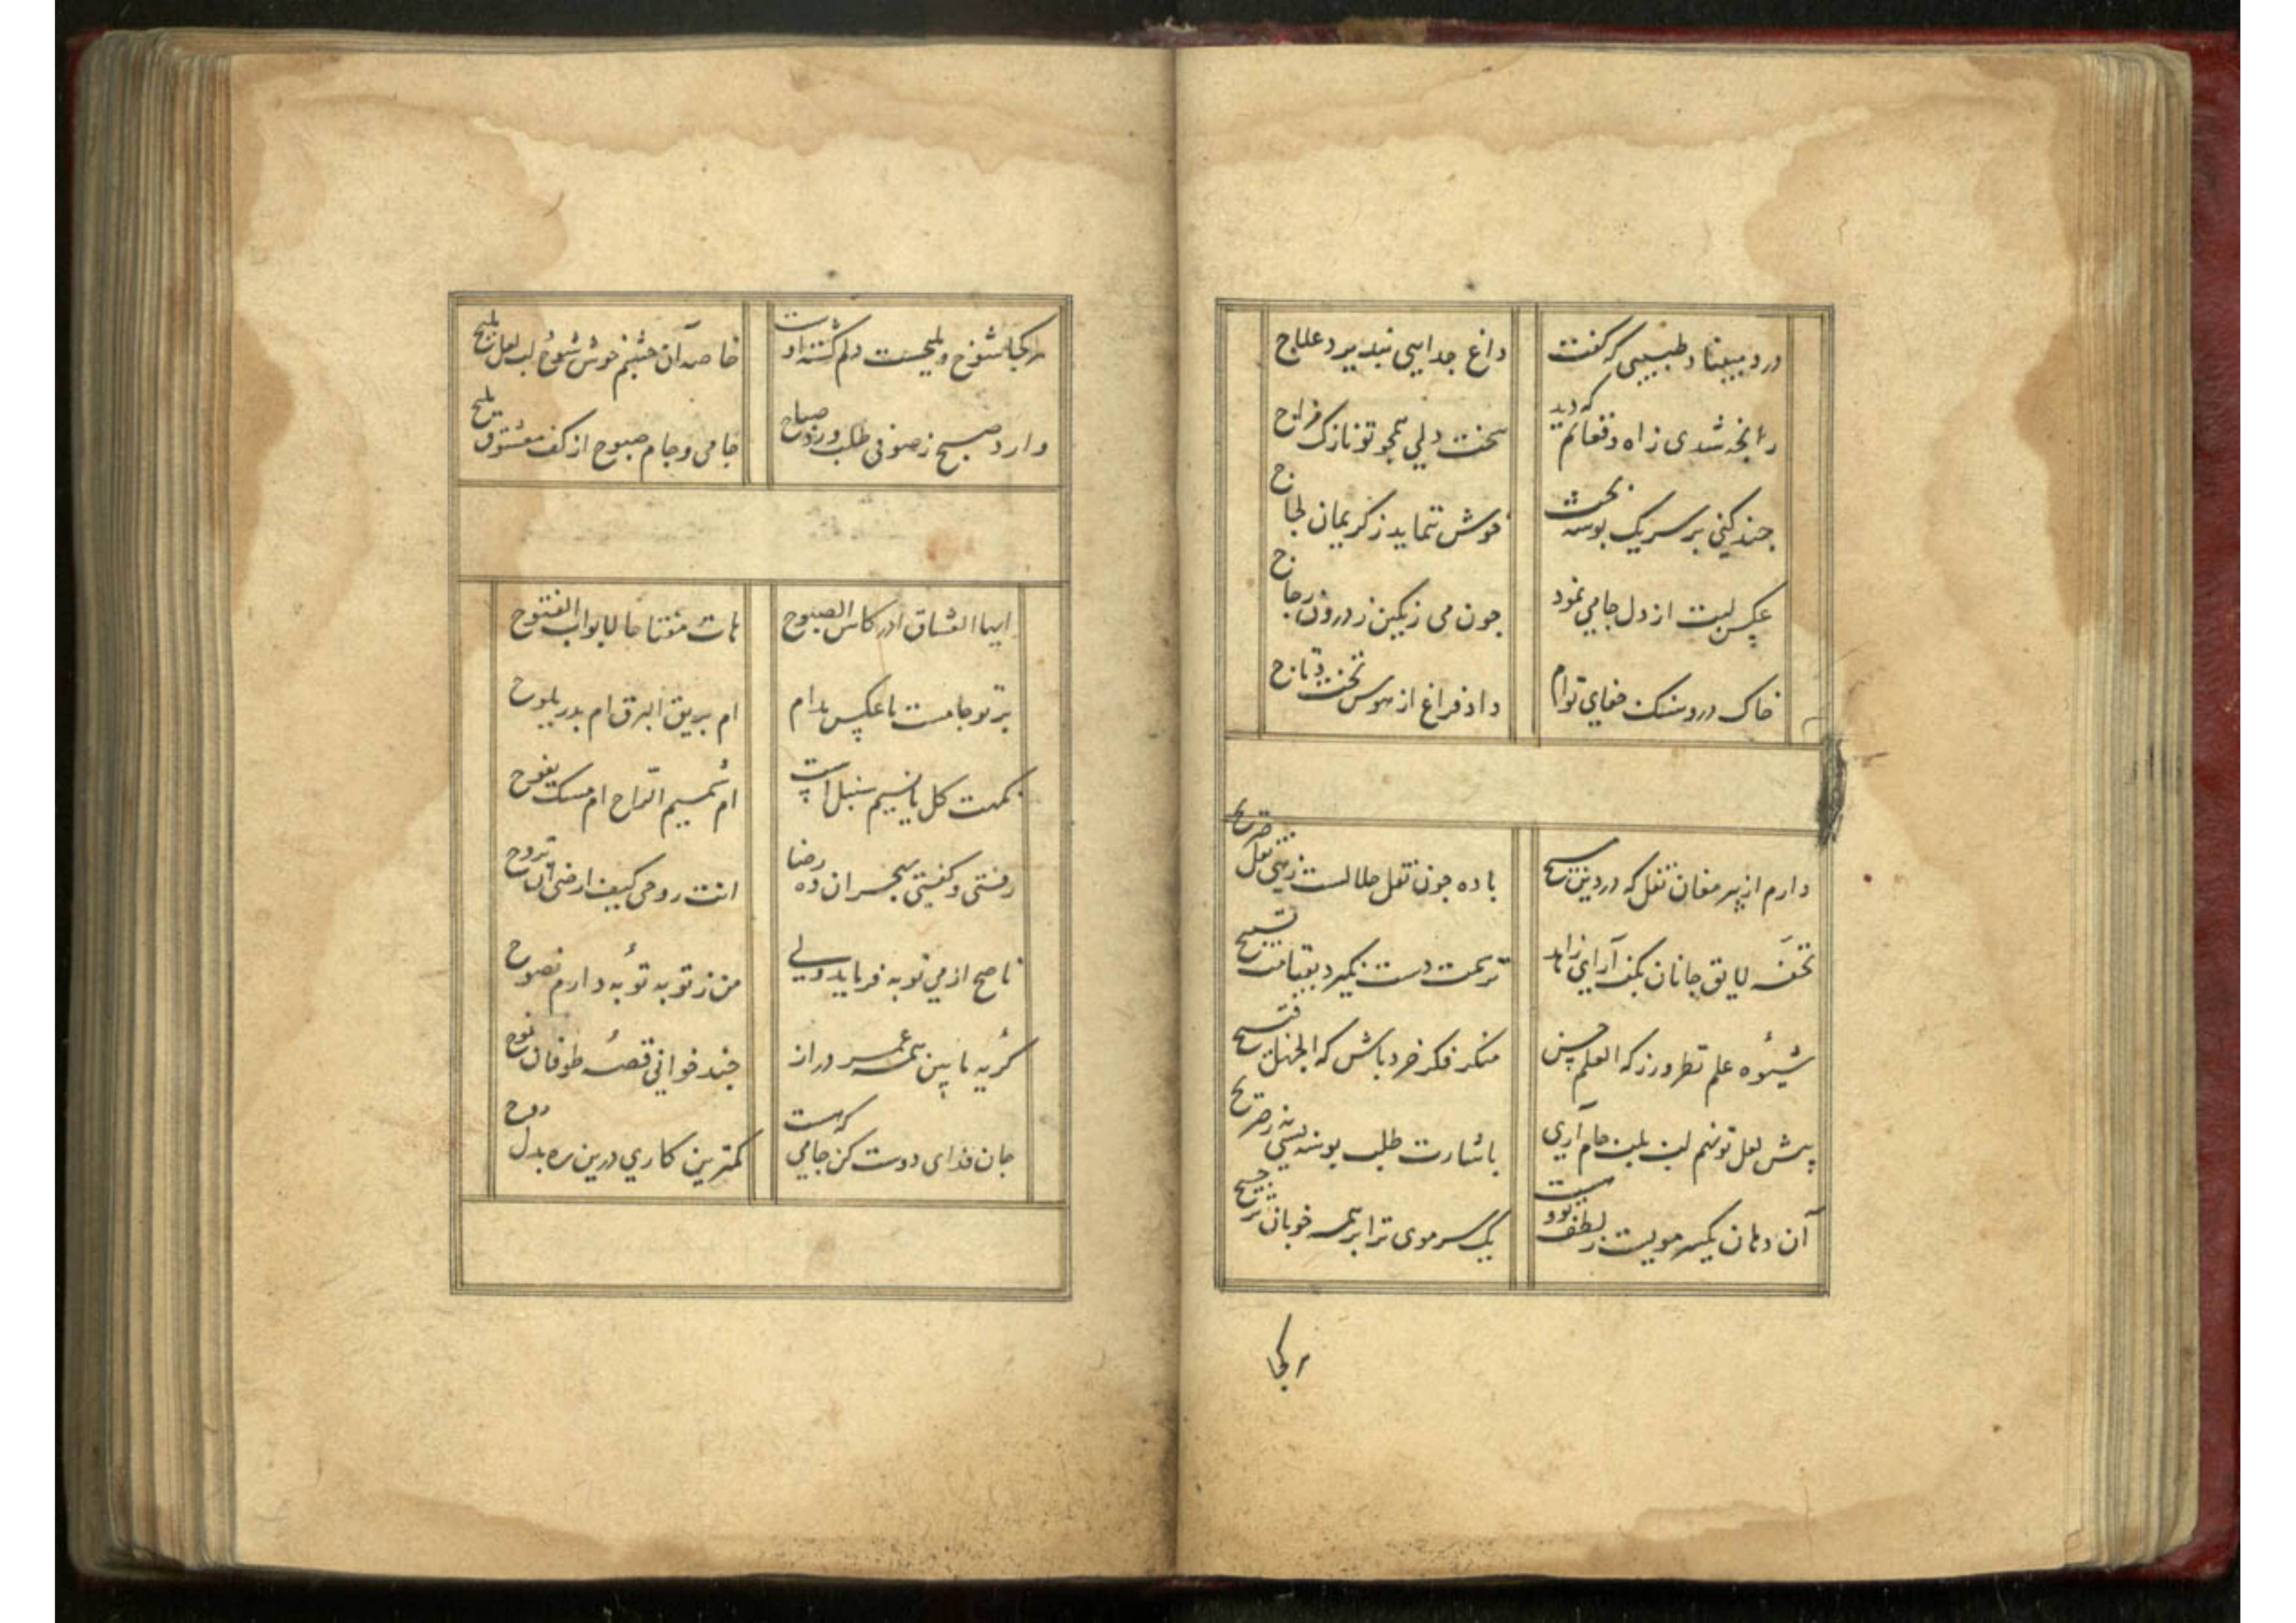 درد مبیناد طبیبی که گفت
داغ جدایی نپذیرد علاج
رنجه شدی ز آه و فغانم که دید
سخت دلی همچو تو نازک مزاج
چند کنی بر سر یک بوسه بحث
خوش ننماید ز کریمان لجاج
عکس لبت از دل جامی نمود
چون می رنگین ز درون زجاج
خاک در و سنک جفای توام
داد فراغ از هوس تخت و تاج
دارم از پیر مغان نقل که در دین مسیح
باده چون نقل حلالست زهی نقل صریح
تحفهٔ لایق جانان بکف آر ای زاهد
ترسمت دست نگیرد بقیامت تسبیح
منکر فکر خرد باش که الجهل قبیح
شیوهٔ علم نظر ورز که العلم حسن
پیش لعل تو نهم لب بلب جام آری
باشارت طلب بوسه بسی به ز صریح
آن دهان یکسر مویست ز لطف و بودست
یک سر موی ترا بر همه خوبان ترجیح
هر کجا
هر کجا شوخ و ملیحست دلم کشتهٔ اوست
خاصه آن چشم خوش شوخ و لب لعل ملیح
وارد صبح ز صوفی طلب و ورد صباح
جامی و جام صبوح از کف معشوق ملیح
ایها العشاق ادر کاس الصبوح
هات مفتاحا لابواب الفتوح
پرتو جامست یا عکس مدام
ام بریق البرق ام بدر یلوح
نکهت کل یا نسیم سنبل است
ام شمیم الراح ام مسک یفوح
رفتی و گفتی بهجران ده رضا
انت روحی کیف ارضی ان تروح
ناصح از می توبه فرماید ولی
من ز توبه توبه دارم نصوح
گریهٔ ما بین همه عمر دراز
چند خوانی قصهٔ طوفان نوح
جان فدای دوست کن جامی که هست
کمترین کاری درین ره بذل روح